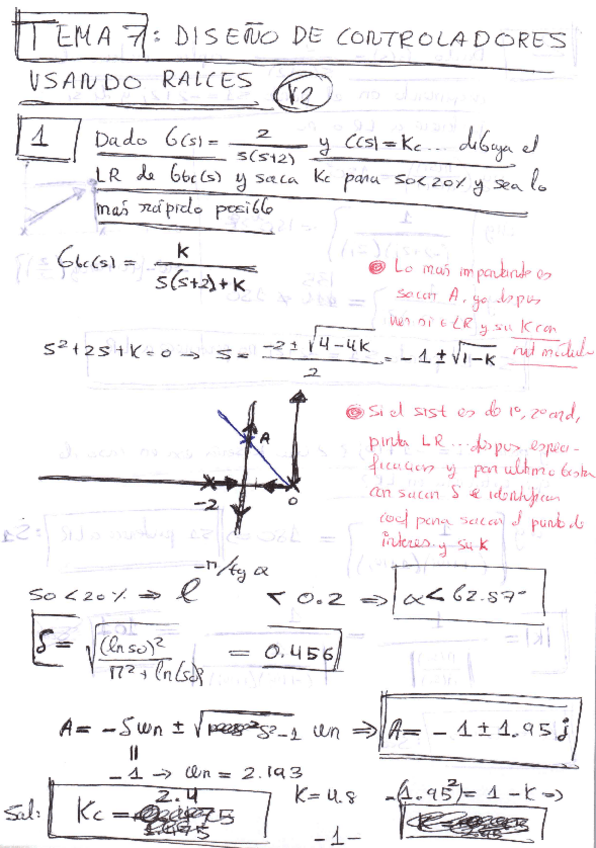 TEMA 7: DISEÑO DE CONTROLADORES
USANDO RAICES V2
1 Dado G(s)= 2/s(s+2) y C(s)=Kc... dibuja el
LR de Gbc(s) y saca Kc para SO<20% y sea lo
más rápido posible
Gbc(s) = K/s(s+2)+K
Lo mas importante es
sacar A, ya
LR y su K con
s²+2s+K=0 → s= -2±√4-4K/2 = -1±√1-K
A
-2
0
Si el sist es de 1º, 2º ord,
pinta LR... despues especi-
ficaciones y por ultimo
con sacar S e identificar
coef para sacar el punto de
interes y su K
SO<20% ⇒ e^-π/tg α < 0.2 ⇒ α<62.87º
δ= √(ln so)²/π²+ln(so)² = 0.456
A= -δωn ± √δ²-1 ωn ⇒ A= -1±1.95j
=
-1 → ωn = 2.193
Sol: Kc = 2.4
K=4.8
-(1.95²)= 1-K ⇒
-1-